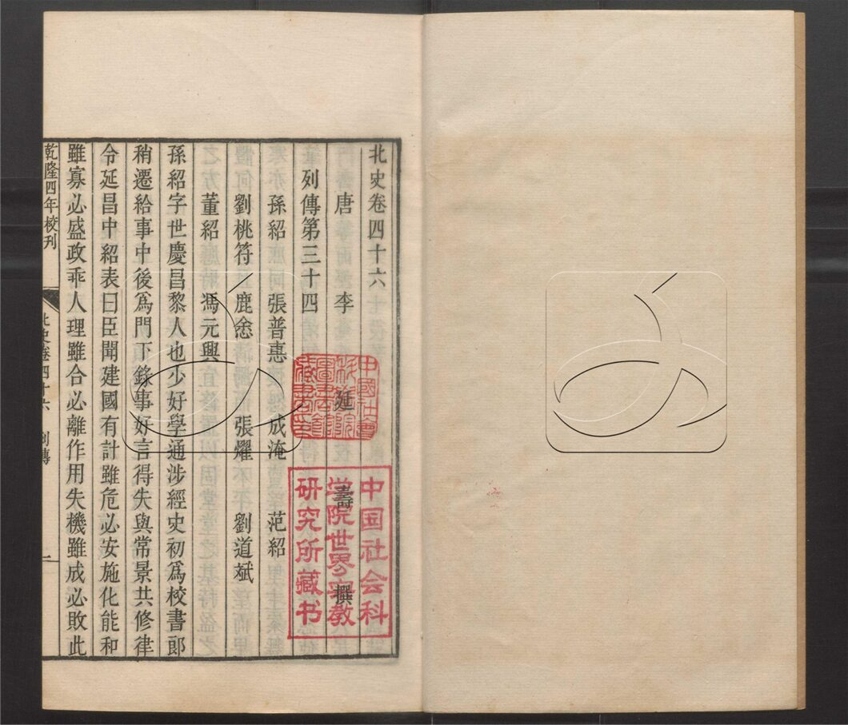 北史卷四十六
唐 李 延 壽 撰
列傳第三十四
孫紹 張普惠 成淹 范紹
劉桃符 鹿悆 張燿 劉道斌
董紹 馮元興
孫紹字世慶昌黎人也少好學通涉經史初爲校書郎
稍遷給事中後爲門下錄事好言得失與常景共修律
令延昌中紹表曰臣聞建國有計雖危必安施化能和
雖寡必盛政乖人理雖合必離作用失機雖成必敗此
乾隆四年校刊
北史卷四十六 列傳
一
中國社會
科學院
圖書館
藏書印
中国社会科
学院世界宗教
研究所藏书